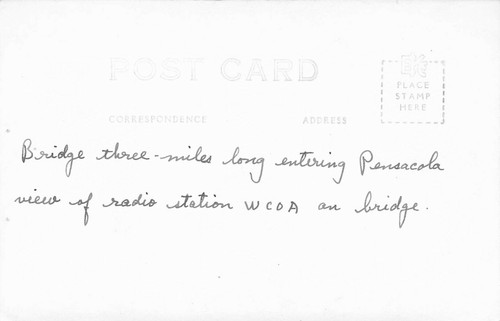 POST CARD
PLACE
STAMP
HERE
CORRESPONDENCE ADDRESS
Bridge three-miles long entering Pensacola
view of radio station WCOA an bridge.